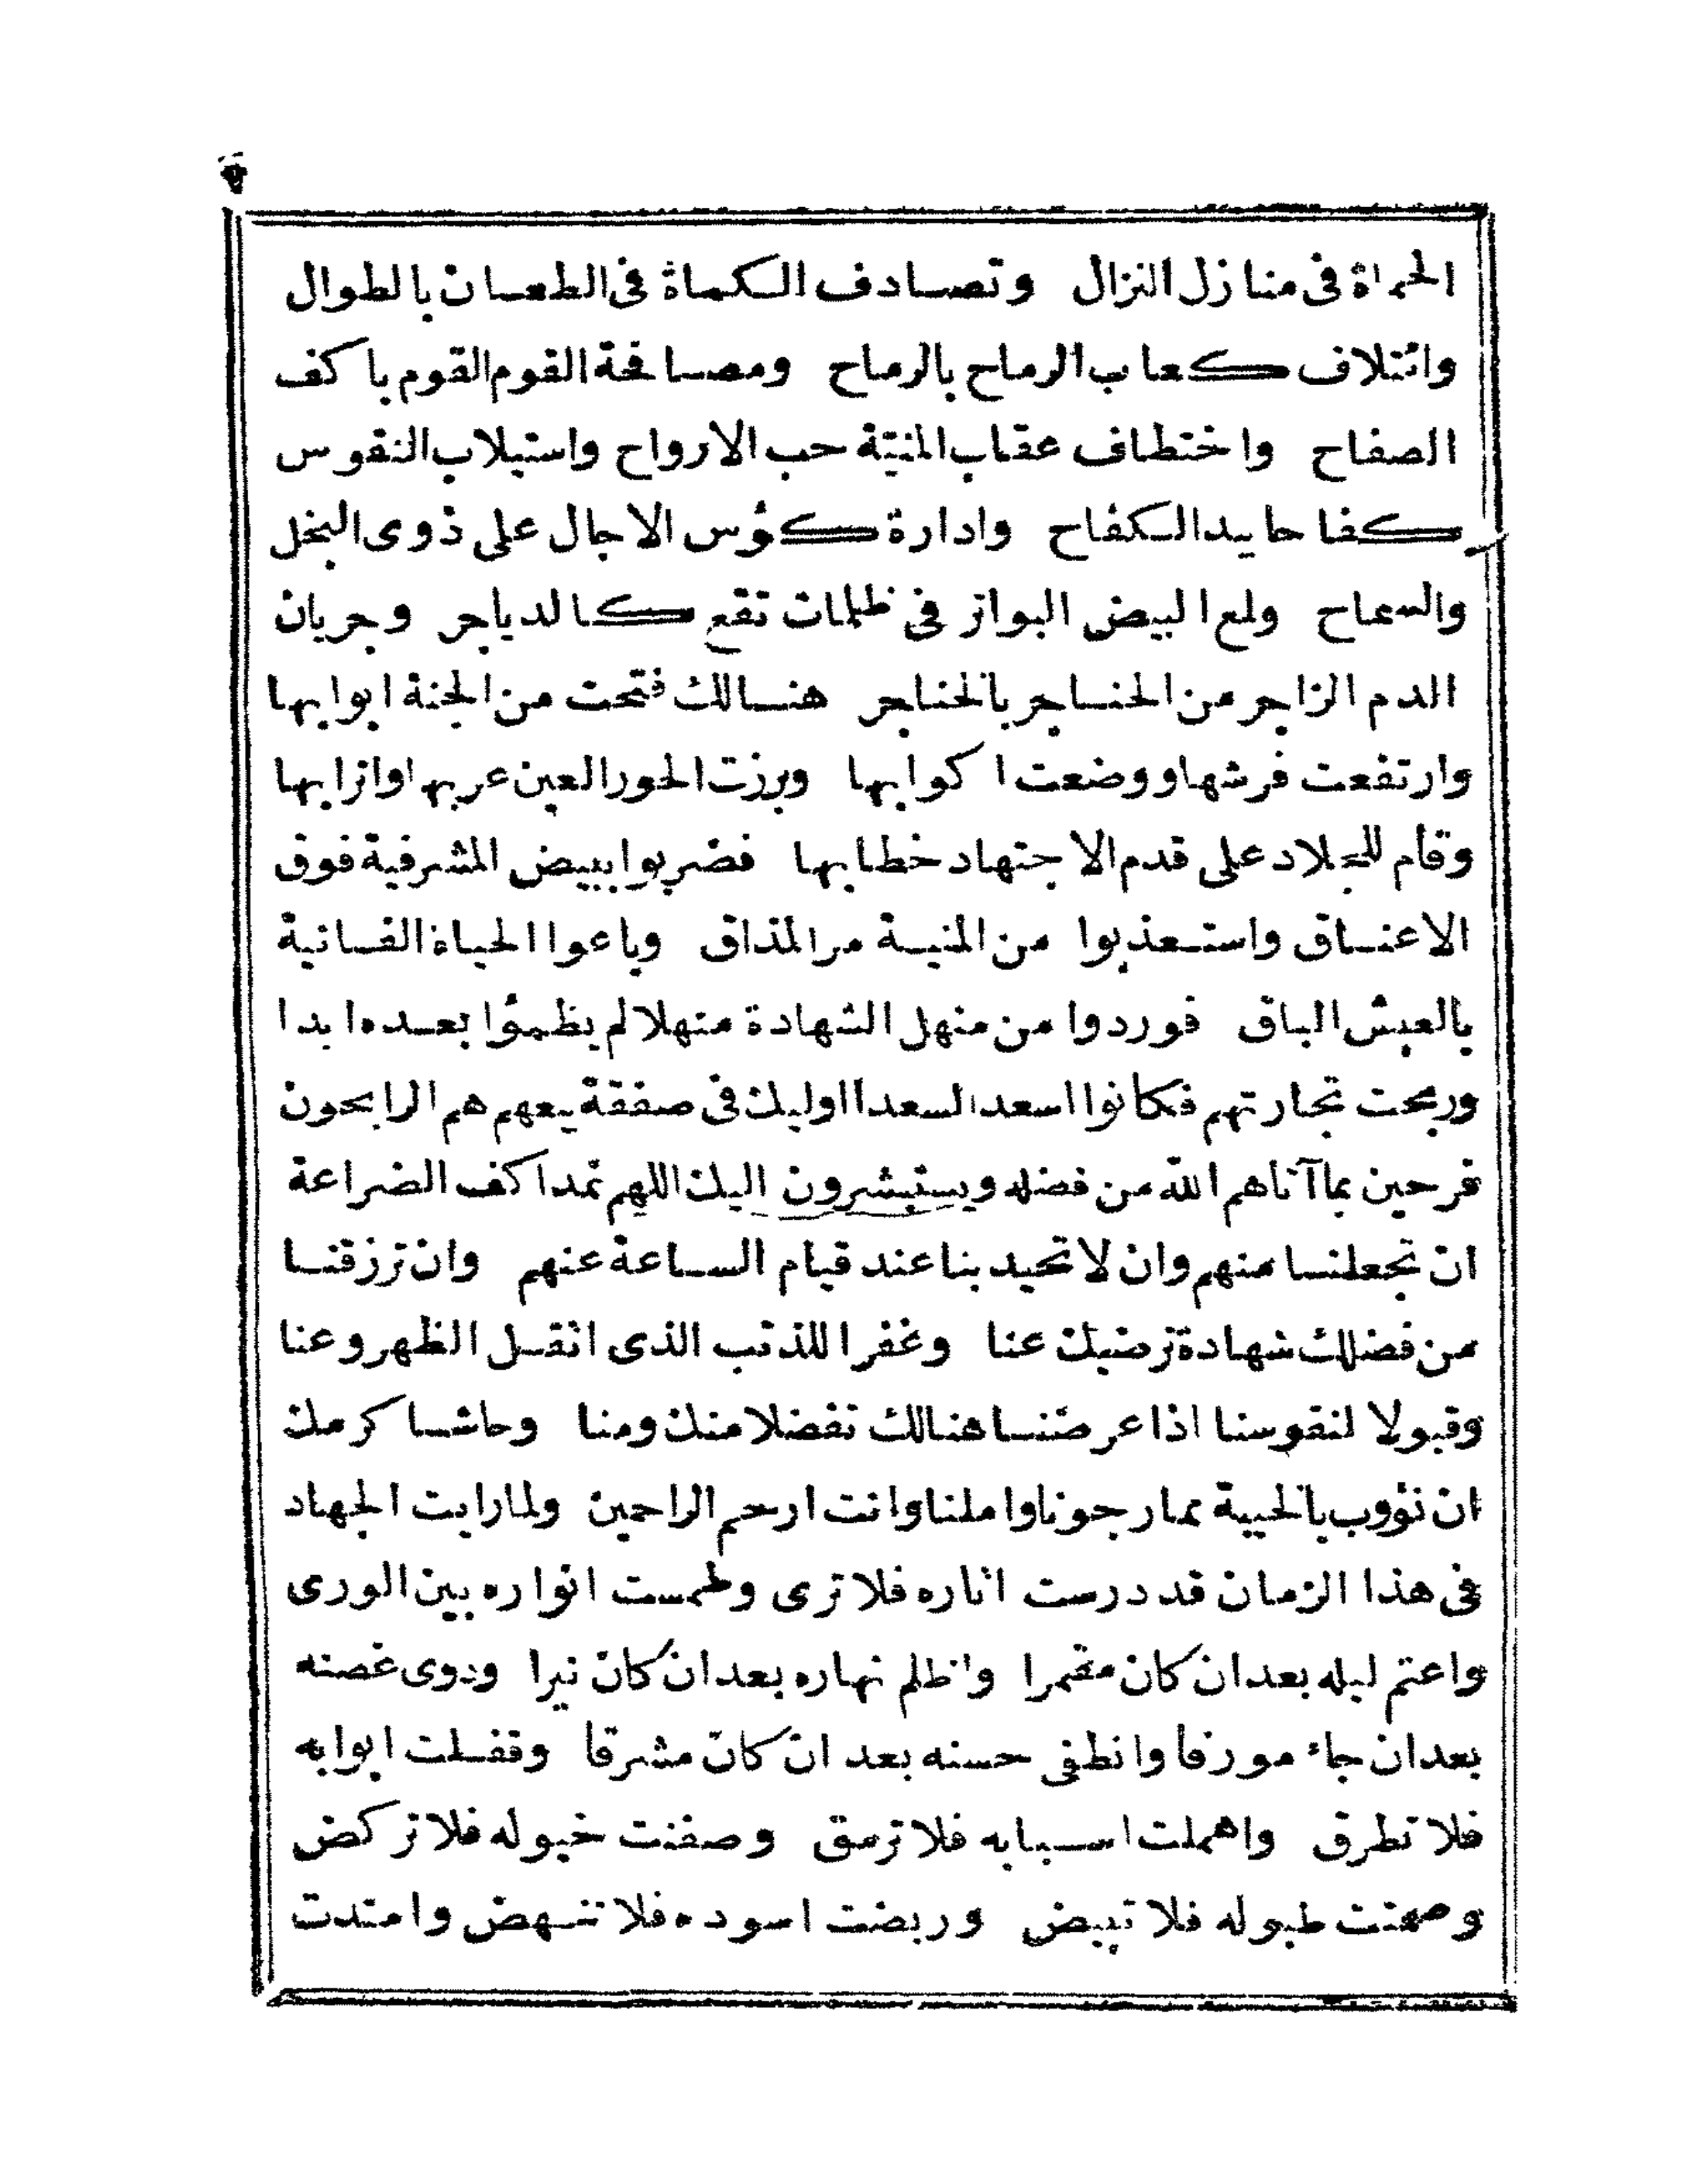 الحماة فى منازل النزال وتصادف الكماة فى الطعان بالطوال
وائتلاف كعاب الرماح بالرماح ومصافحة القوم القوم باكف
الصفاح واختطاف عقاب المنيّة حب الارواح واستيلاب النفوس
كفاحا بيد الكفاح وادارة كؤس الاجال على ذوى البخل
والسماح ولمع البيض البواتر فى ظلمات نقع كالدياجر وجريان
الدم الزاجر من الحناجر بالخناجر هنالك فتحت من الجنة ابوابها
وارتفعت فرشها ووضعت اكوابها وبرزت الحور العين عربها واترابها
وقام للجلاد على قدم الاجتهاد خطابها فضربوا ببيض المشرفية فوق
الاعناق واستعذبوا من المنية مر المذاق وباعوا الحياة الفانية
بالعيش الباق فوردوا من منهل الشهادة منهلا لم يظمئوا بعده ابدا
وربحت تجارتهم فكانوا اسعد السعدا اوليك فى صفقة بيعهم هم الرابحون
فرحين بما آتاهم الله من فضله ويستبشرون اليك اللهم نمد اكف الضراعة
ان تجعلنا منهم وان لا تحيد بنا عند قيام الساعة عنهم وان ترزقنا
من فضلك شهادة ترضيك عنا وغفرا للذنب الذى اثقل الظهر وعنا
وقبولا لنفوسنا اذا عرضنا هنالك تفضلا منك ومنا وحاشا كرمك
ان نؤوب بالخيبة بما رجونا واملنا وانت ارحم الراحمين ولما رايت الجهاد
فى هذا الزمان قد درست اثاره فلا ترى وطمست انواره بين الورى
واعتم ليله بعد ان كان مقمرا واظلم نهاره بعد ان كان نيرا وذوى غصنه
بعد ان جاء مورقا وانطفى حسنه بعد ان كان مشرقا وقفلت ابوابه
فلا تطرق واهملت اسبابه فلا ترمق وصفنت خيوله فلا تركض
وصمتت طبوله فلا تبيض وربضت اسوده فلا تنهض وامتدت